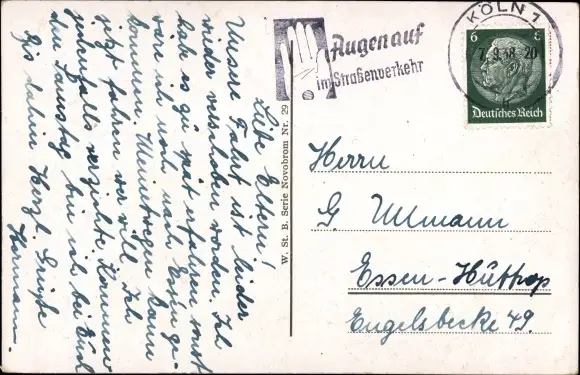 Liebe Eltern!
Unsere Fahrt ist leider
wieder verschoben worden. Ich
hab es zu spät erfahren sonst
wäre ich noch nach Essen ge-
kommen. Meinetwegen kann
jetzt fahren wer will. Ich
jedenfalls verzichte. Kommenden Samstag bin ich bei Euch
Bis dahin Herzl. Grüße
Hermann.
W. St. B. Serie Novobrom Nr. 29
Augen auf
im Straßenverkehr
KÖLN 1
7.9.38.20
6 6
Deutsches Reich
Herrn
G. Ullmann
Essen-Huttrop
Engelsbecke 49.